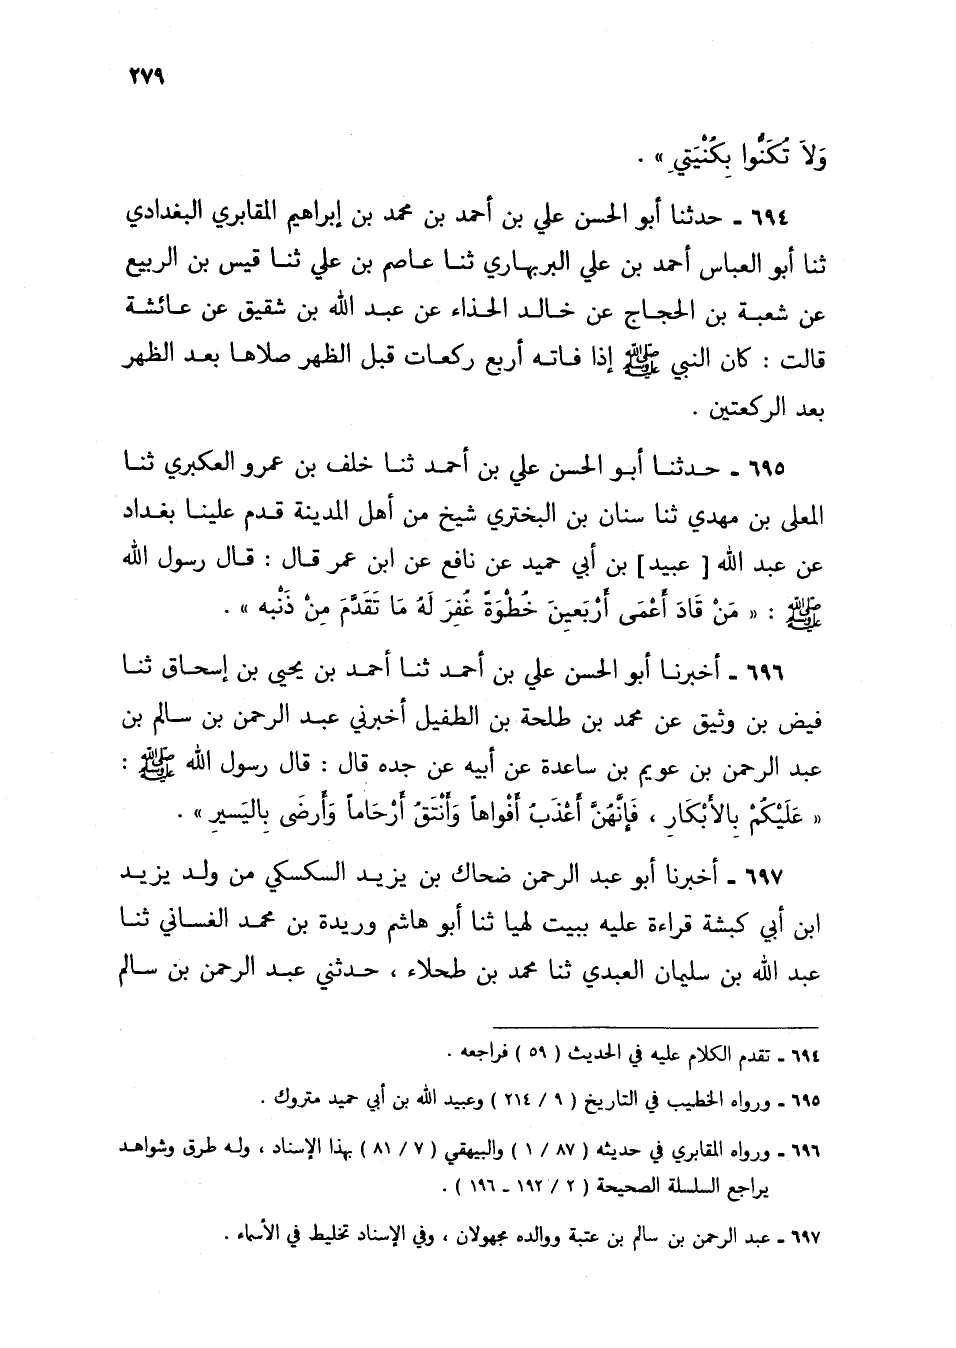 ٢٧٩
وَلاَ تُكَنُّوا بِكُنْيَتِي » .
٦٩٤ ـ حدثنا أبو الحسن علي بن أحمد بن محمد بن إبراهيم المقابري البغدادي
ثنا أبو العباس أحمد بن علي البربهاري ثنا عاصم بن علي ثنا قيس بن الربيع
عن شعبة بن الحجاج عن خالد الحذاء عن عبد الله بن شقيق عن عائشة
قالت : كان النبي ﷺ إذا فاته أربع ركعات قبل الظهر صلاها بعد الظهر
بعد الركعتين .
٦٩٥ ـ حدثنا أبو الحسن علي بن أحمد ثنا خلف بن عمرو العكبري ثنا
المعلى بن مهدي ثنا سنان بن البختري شيخ من أهل المدينة قدم علينا بغداد
عن عبد الله [ عبيد ] بن أبي حميد عن نافع عن ابن عمر قال : قال رسول الله
ﷺ : « مَنْ قَادَ أَعْمَى أَرْبَعِينَ خُطْوَةً غُفِرَ لَهُ مَا تَقَدَّمَ مِنْ ذَنْبِهِ » .
٦٩٦ ـ أخبرنا أبو الحسن علي بن أحمد ثنا أحمد بن يحيى بن إسحاق ثنا
فيض بن وثيق عن محمد بن طلحة بن الطفيل أخبرني عبد الرحمن بن سالم بن
عبد الرحمن بن عويم بن ساعدة عن أبيه عن جده قال : قال رسول الله ﷺ :
« عَلَيْكُمْ بِالأَبْكَارِ ، فَإِنَّهُنَّ أَعْذَبُ أَفْواهاً وَأَنْتَقُ أَرْحَاماً وَأَرضَى بِاليَسيرِ » .
٦٩٧ ـ أخبرنا أبو عبد الرحمن ضحاك بن يزيد السكسكي من ولد يزيد
ابن أبي كبشة قراءة عليه ببيت لهيا ثنا أبو هاشم وريدة بن محمد الغساني ثنا
عبد الله بن سليمان العبدي ثنا محمد بن طحلاء ، حدثني عبد الرحمن بن سالم
٦٩٤ ـ تقدم الكلام عليه في الحديث ( ٥٩ ) فراجعه .
٦٩٥ ـ ورواه الخطيب في التاريخ ( ٩ / ٢١٤ ) وعبيد الله بن أبي حميد متروك .
٦٩٦ ـ ورواه المقابري في حديثه ( ٨٧ / ١ ) والبيهقي ( ٧ / ٨١ ) بهذا الإسناد ، وله طرق وشواهد
يراجع السلسلة الصحيحة ( ٢ / ١٩٢ ـ ١٩٦ ) .
٦٩٧ ـ عبد الرحمن بن سالم بن عتبة ووالده مجهولان ، وفي الإسناد تخليط في الأسماء .